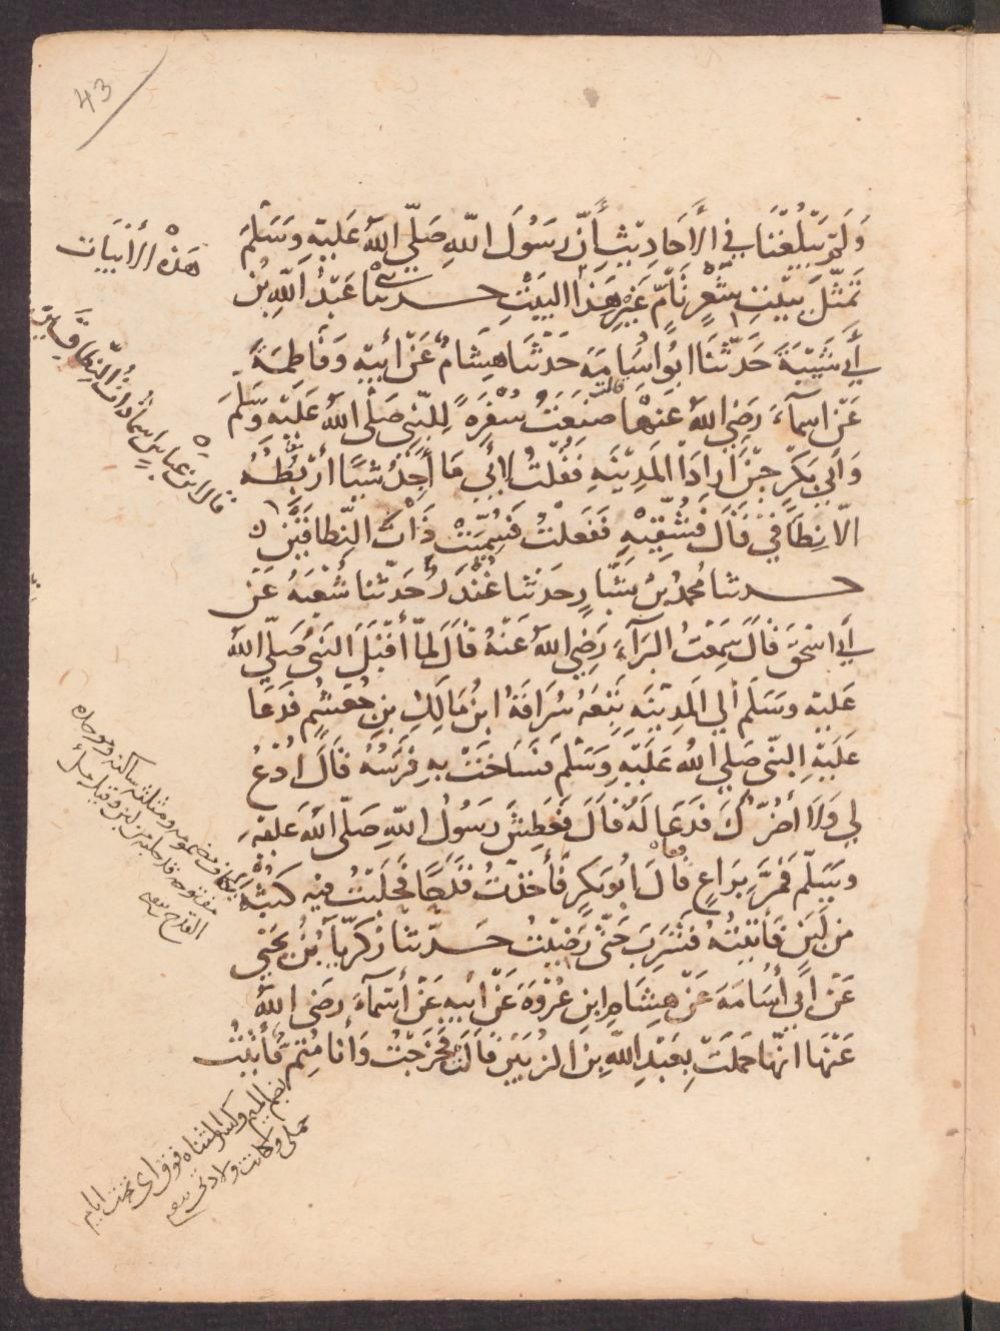 43
وَلَمْ يَبْلُغْنَا فِي الْأَحَادِيثِ أَنَّ رَسُولَ اللَّهِ صَلَّى اللَّهُ عَلَيْهِ وَسَلَّمَ
تَمَثَّلَ بِبَيْتِ شِعْرٍ تَامٍّ غَيْرِ هَذَا الْبَيْتِ حدثنا عَبْدُ اللَّهِ بْنُ
أَبِي شَيْبَةَ حَدَّثَنَا ابُوا اُسَامَةَ حَدَّثَنَا هِشَامٌ عَنْ أَبِيهِ وَفَاطِمَةَ
عَنْ اسمآءَ رَضِيَ اللَّهُ عَنْهَا قالت صَنَعَتُ سُفْرَةً لِلنَّبِيِّ صَلَّى اللَّهُ عَلَيْهِ وَسَلَّمَ
وَأَبِي بَكْرٍ حِينَ أَرَادَا الْمَدِينَةِ فَقُلْتُ لِابِي مَا أَجِدُ شَيْئًا أَرْبُطُهُ
الّا نِطَاقِي قَالَ فَشُقِّيهِ فَفَعَلْتُ فَسُمِّيتُ ذَاتَ النِّطَاقَيْنِ
حدثنا مُحَمَّدُ بْنُ بَشَّارٍ حَدَثنا غُنْدَرٌ حَدَّثنا شُعْبَهُ عَنْ
أَبِي اسْحَقَ قَالَ سَمِعْتُ الْبَرَآءَ رَضِيَ اللَّهُ عَنْهُ قَالَ لَمَّا أَقْبَلَ النَبيُّ صَلَّى اللَّهُ
عَلَيْهِ وَسَلَّمَ إلي الْمَدِينَه تَبِعَهُ سُرَاقَةُ ابْنُ مَالِكِ بنِ جُعْشُمٍ فَدَعَا
عَلَيْهِ النَّبي صَلَّي اللَّهُ عَلَيْهِ وَسَلَّمَ فَسَاخَتْ بِهِ فَرَسُهُ قَالَ ادْعُ
لِي وَلَا أَضُرُّكَ فَدَعَا لَهُ قَالَ فَعَطِشَ رَسُولُ اللَّهِ صَلَّى اللَّهُ عَلَيْهِ
وَسَلَّم فَمَرَّ بِرَاعٍ قَالَ أبُو بَكْرٍ فَأَخَذْتُ قَدَحًا فَحَلَبْتُ فيه كُثْبَةً
مِنْ لَبَنٍ فَأَتَيْتُهُ فَشَرِبَ حَتَّى رَضِيتُ حَدَّثنا زَكَرِيَّآءُ بْنُ يَحْيَي
عَنْ أَبِي أُسَامَةَ عَنْ هِشَامِ ابنِ عُرْوَةَ عَنْ أَبِيهِ عَنْ أَسْمَآءَ رَضِيَ اللَّهُ
عَنْهَا انَّهَا حَمَلَتْ بِعَبْدِ اللَّهِ بنِ الزُبَيْرِ قَالَتْ فَخَرَجْتُ وَأَنَا مُتِمٌّ فَأَتَيْتُ
هَذْهِ الْأَبْيَات
قال ابن عباس اسمآءُ ذاتُ النِّطاقَيْنِ
القدح
بضم الميم وكسر المثناة فوق اى تمت ايام
حملى وكانت ولادتى